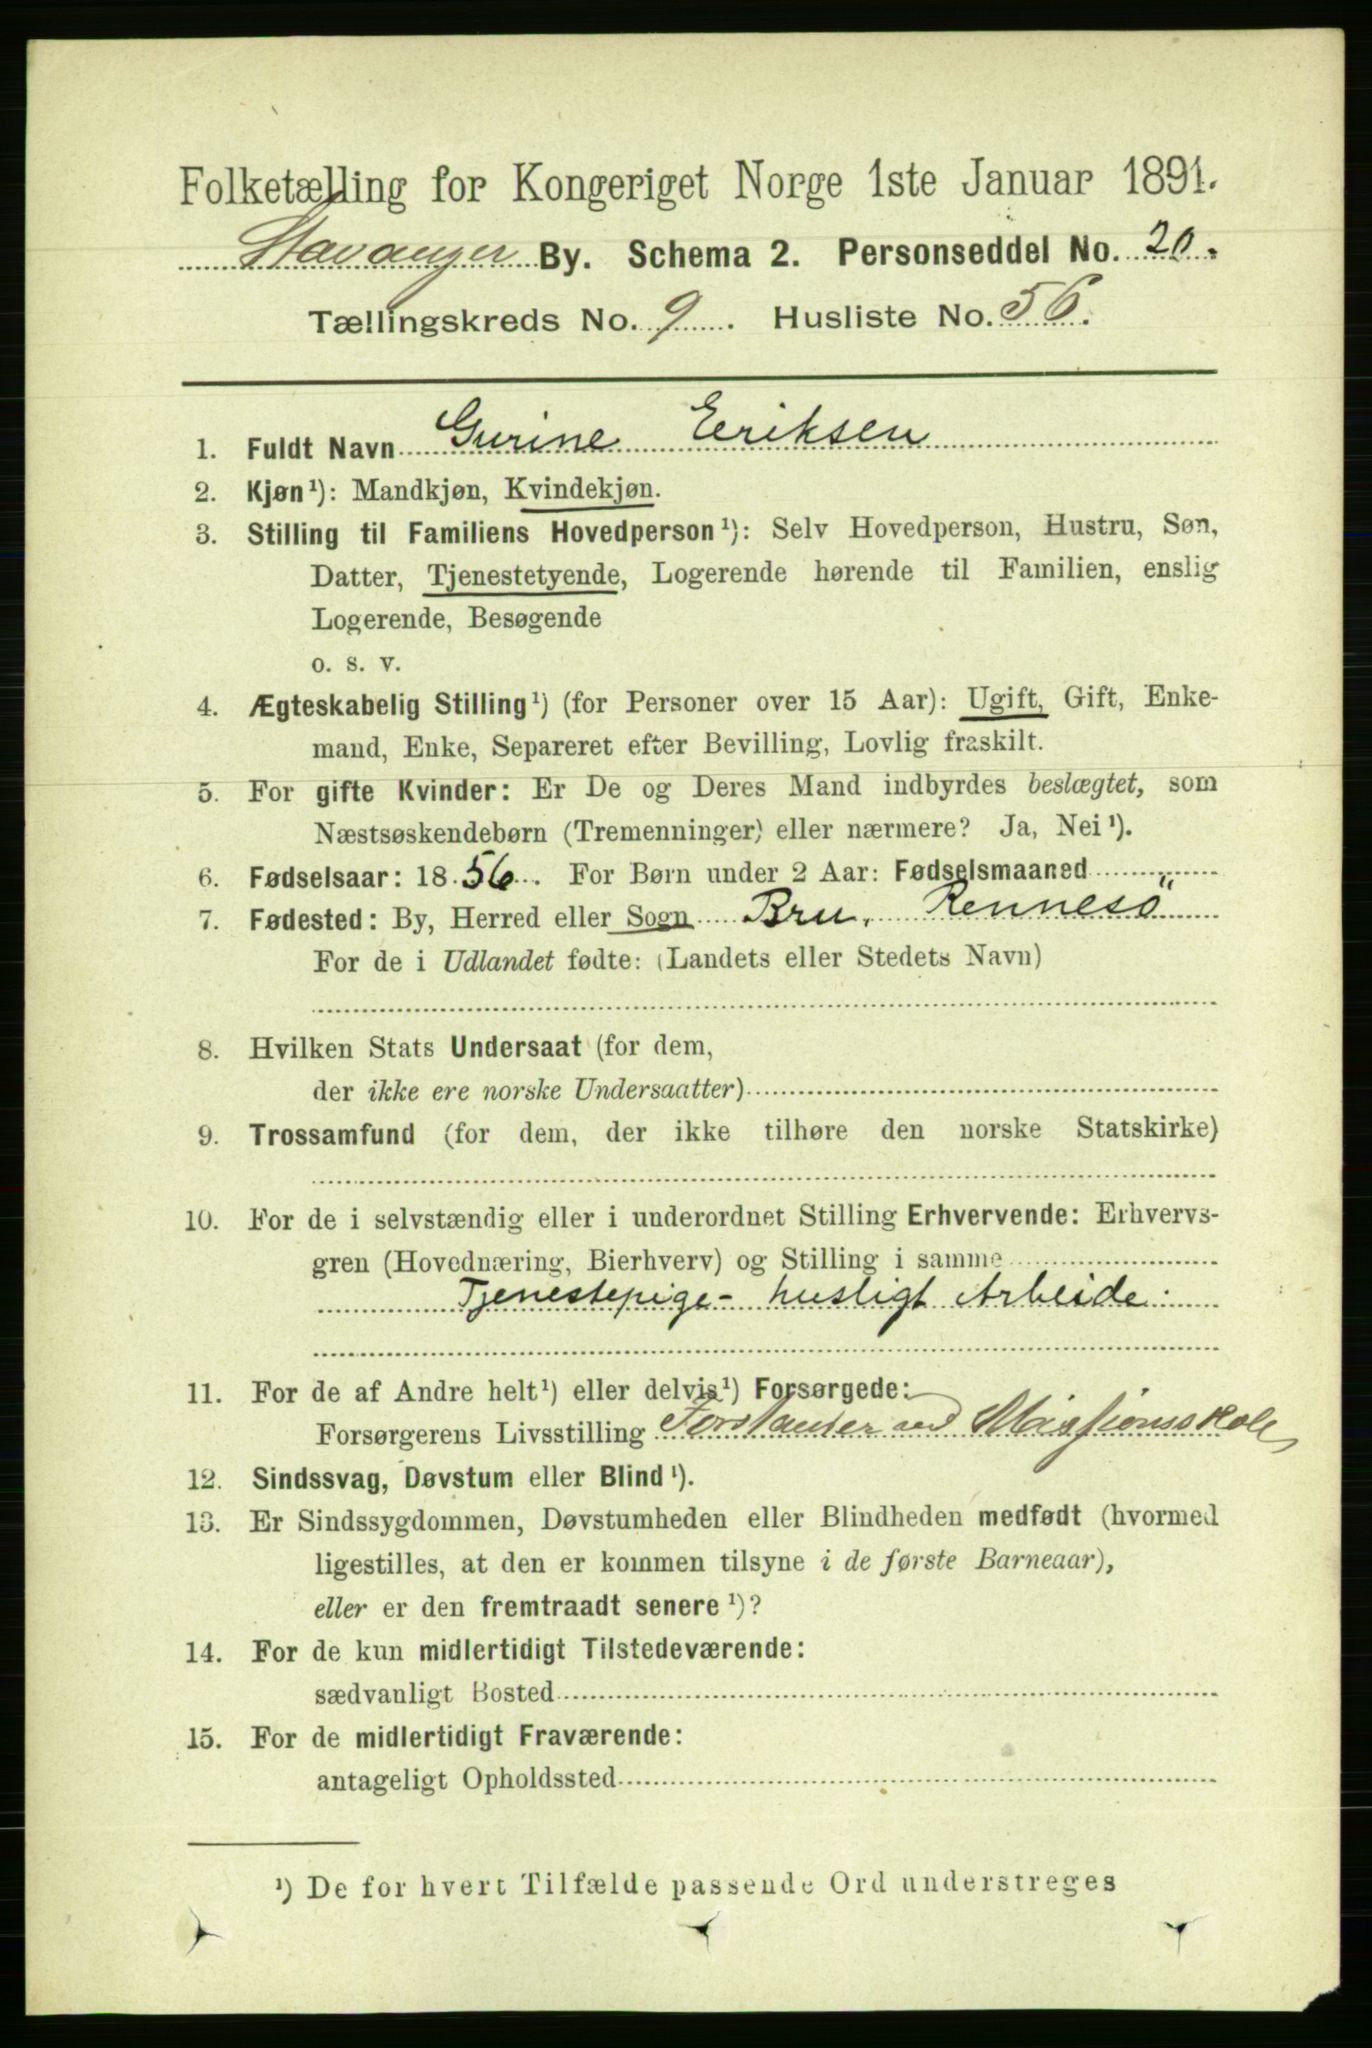 Folketælling for Kongeriget Norge 1ste Januar 1891.
Stavanger By. Schema 2. Personseddel No. 20.
Tællingskreds No. 9. Husliste No. 56.
1. Fuldt Navn Gurine Eeriksen
2. Kjøn¹): Mandkjøn, Kvindekjøn.
3. Stilling til Familiens Hovedperson¹): Selv Hovedperson, Hustru, Søn,
Datter, Tjenestetyende, Logerende hørende til Familien, enslig
Logerende, Besøgende
o. s. v.
4. Ægteskabelig Stilling¹) (for Personer over 15 Aar): Ugift, Gift, Enke-
mand, Enke, Separeret efter Bevilling, Lovlig fraskilt.
5. For gifte Kvinder: Er De og Deres Mand indbyrdes beslægtet, som
Næstsøskendebørn (Tremenninger) eller nærmere? Ja, Nei¹).
6. Fødselsaar: 1856. For Børn under 2 Aar: Fødselsmaaned
7. Fødested: By, Herred eller Sogn Bru, Rennesö
For de i Udlandet fødte: (Landets eller Stedets Navn)
8. Hvilken Stats Undersaat (for dem,
der ikke ere norske Undersaatter)
9. Trossamfund (for dem, der ikke tilhøre den norske Statskirke)
10. For de i selvstændig eller i underordnet Stilling Erhvervende: Erhvervs-
gren (Hovednæring, Bierhverv) og Stilling i samme
Tjenestepige- husligt Arbeide.
11. For de af Andre helt¹) eller delvis¹) Forsørgede:
Forsørgerens Livsstilling Forstander ved Missionsskole
12. Sindssvag, Døvstum eller Blind¹).
13. Er Sindssygdommen, Døvstumheden eller Blindheden medfødt (hvormed
ligestilles, at den er kommen tilsyne i de første Barneaar),
eller er den fremtraadt senere¹)?
14. For de kun midlertidigt Tilstedeværende:
sædvanligt Bosted
15. For de midlertidigt Fraværende:
antageligt Opholdssted
¹) De for hvert Tilfælde passende Ord understreges